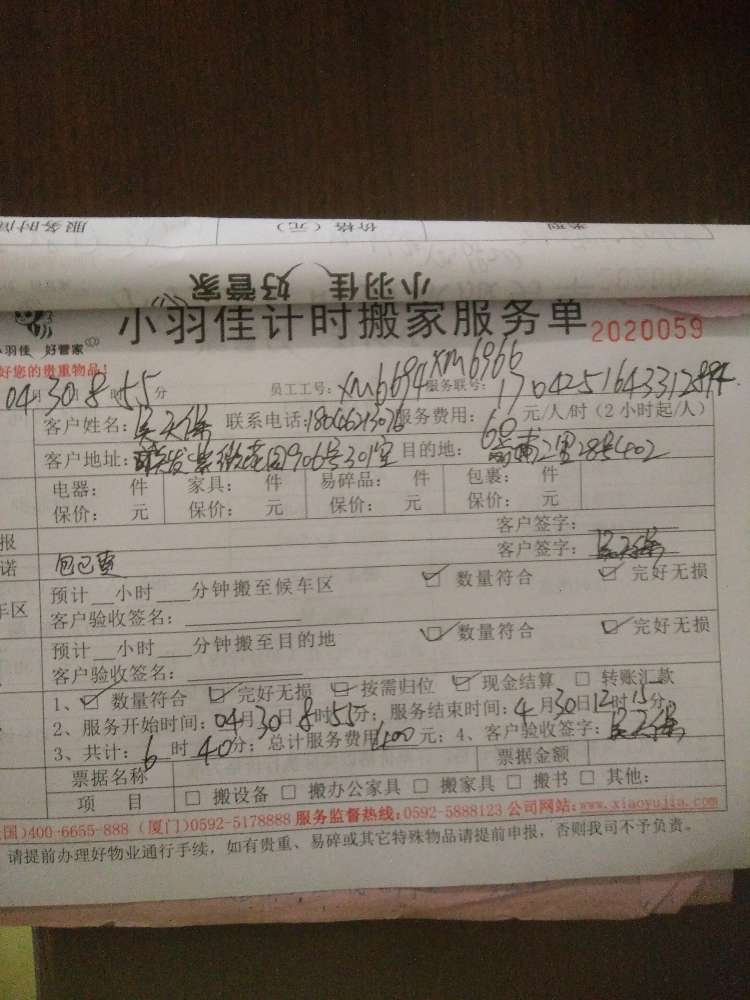 服务时间 价格（元） 类型
小羽佳 好管家
小羽佳计时搬家服务单 2020059
小羽佳 好管家
好您的贵重物品！
04月30日8时55分 员工工号：XM6694 XM6966 服务联号：1704251643312894
客户姓名： 联系电话： 服务费用：60元/人/时（2小时起/人）
客户地址：紫薇花园906号301室 目的地：前埔二里28号402
电器： 件 家具： 件 易碎品： 件 包裹： 件
保价： 元 保价： 元 保价： 元 保价： 元
报 客户签字：
诺 客户签字：
预计 小时 分钟搬至候车区 数量符合 完好无损
车区 客户验收签名：
预计 小时 分钟搬至目的地 数量符合 完好无损
客户验收签名：
1、数量符合 完好无损 按需归位 现金结算 转账汇款
2、服务开始时间：04月30日8时55分；服务结束时间：4月30日12时15分；
3、共计：6时40分；总计服务费用400元；4、客户验收签字：
票据名称 票据金额
项 目 搬设备 搬办公家具 搬家具 搬书 其他：
国）400-6655-888（厦门）0592-5178888 服务监督热线：0592-5888123 公司网站：www.xiaoyujia.com
请提前办理好物业通行手续，如有贵重、易碎或其它特殊物品请提前申报，否则我司不予负责。